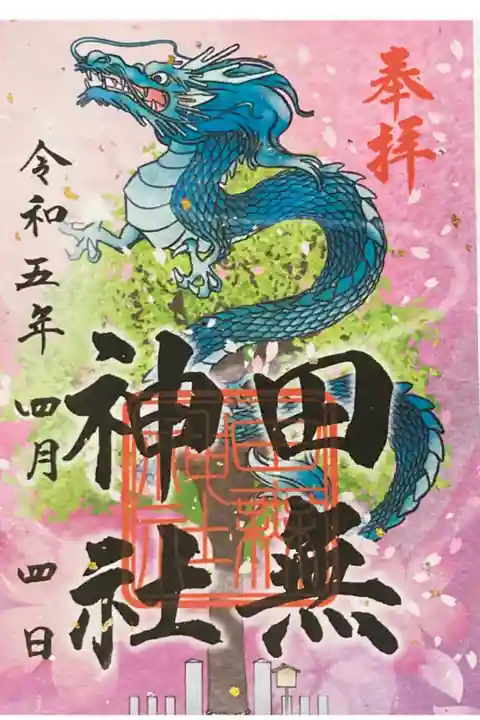 奉拝
田無
神社
令和五年 四月 四日